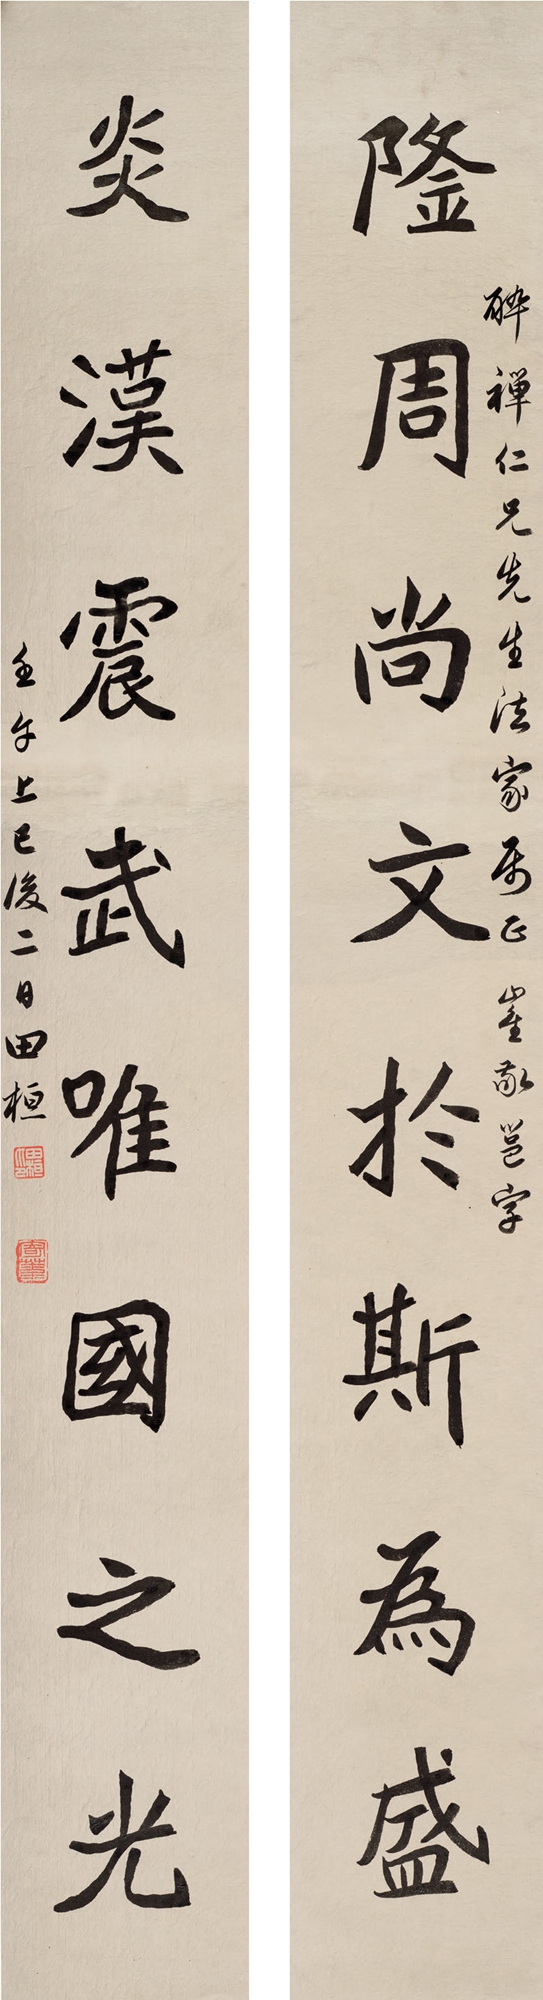 隆周尚文於斯為盛
醉禪仁兄先生法家屬正 崔敬邕字
炎漢震武唯國之光
壬午上巳後二日田桓